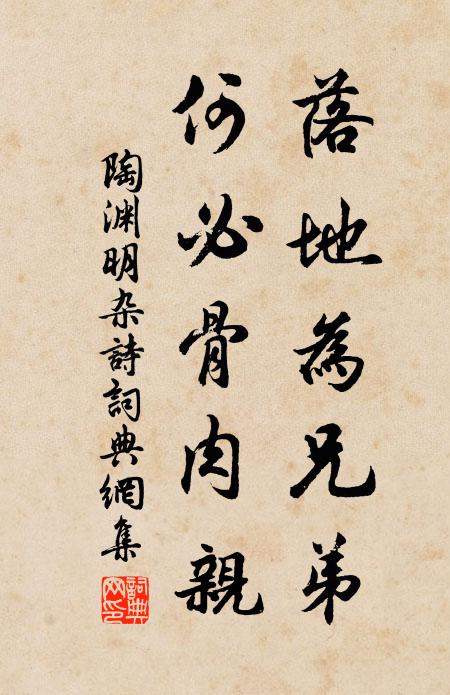 落地為兄弟
何必骨肉親
陶渊明杂詩詞典網集
詞典